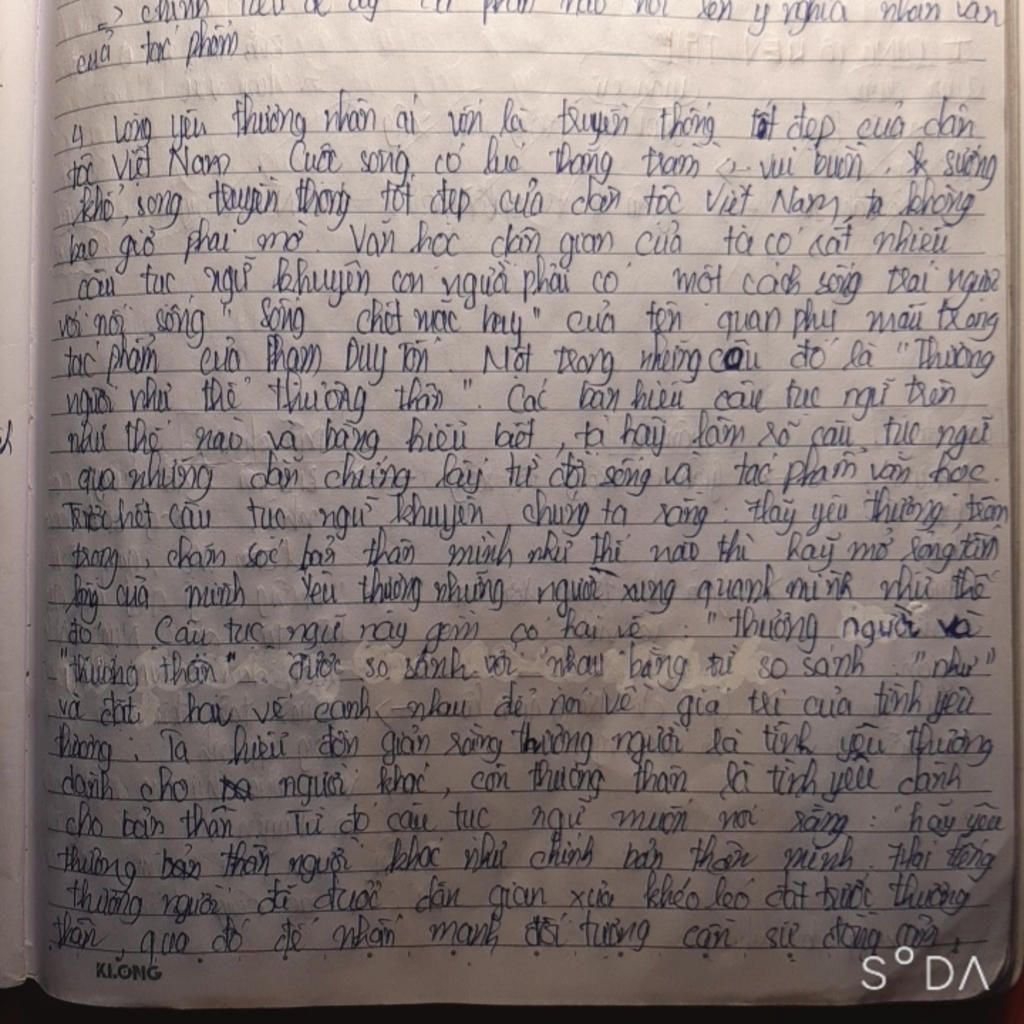 => chính tiêu đề ấy đã phần nào nói lên ý nghĩa nhân văn
của tác phẩm
4 Lòng yêu thương nhân ái vốn là truyền thống tốt đẹp của dân
tộc Việt Nam. Cuộc sống có lúc thăng trầm, vui buồn, sướng
khổ, song truyền thống tốt đẹp của dân tộc Việt Nam ta không
bao giờ phai mờ. Văn học dân gian của ta có rất nhiều
câu tục ngữ khuyên con người phải có một cách sống trái ngược
với lối sống "sống chết mặc bay" của tên quan phụ mẫu trong
tác phẩm của Phạm Duy Tốn. Một trong những câu đó là "Thương
người như thể thương thân". Các bạn hiểu câu tục ngữ trên
như thế nào và bằng hiểu biết, ta hãy làm rõ câu tục ngữ
qua những dẫn chứng lấy từ đời sống và tác phẩm văn học.
Trước hết câu tục ngữ khuyên chúng ta rằng: Hãy yêu thương, trân
trọng, chăm sóc bản thân mình như thế nào thì hãy mở rộng tấm
lòng của mình yêu thương những người xung quanh mình như thế
đó. Câu tục ngữ này gồm có hai vế: "thương người và
"thương thân" được so sánh với nhau bằng từ so sánh "như"
và đặt hai vế cạnh nhau để nói về giá trị của tình yêu
thương. Ta hiểu đơn giản rằng thương người là tình yêu thương
dành cho người khác, còn thương thân là tình yêu dành
cho bản thân. Từ đó câu tục ngữ muốn nói rằng: hãy yêu
thương người khác như chính bản thân mình. Hai tiếng
thương người đã được dân gian xưa khéo léo đặt trước thương
thân, qua đó để nhấn mạnh đối tượng cần sự đồng cảm,
KLONG
SODA